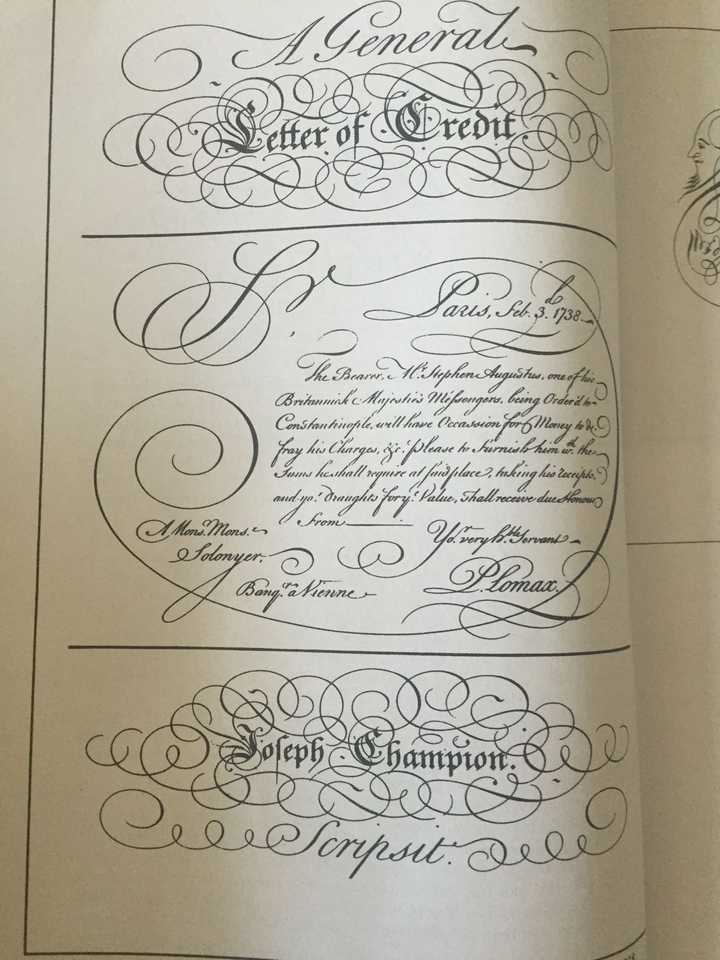 A General
Letter of Credit.
Sr
Paris, Feb. 3.d 1738
The Bearer, Mr. Stephen Augustus, one of his
Britannick Majestie's Messengers, being Order'd to
Constantinople, will have Occassion for Money to de
fray his Charges, &c. please to Furnish him wth. the
Sums he shall require at said place, taking his receipts,
and yor. draughts for ye. Value, Shall receive due Honour
From
A Monsr. Mons.
Yor. very hble. Servant
Solonyer.
Banqr. a Vienne
P. Lomax.
Joseph Champion.
Scripsit.